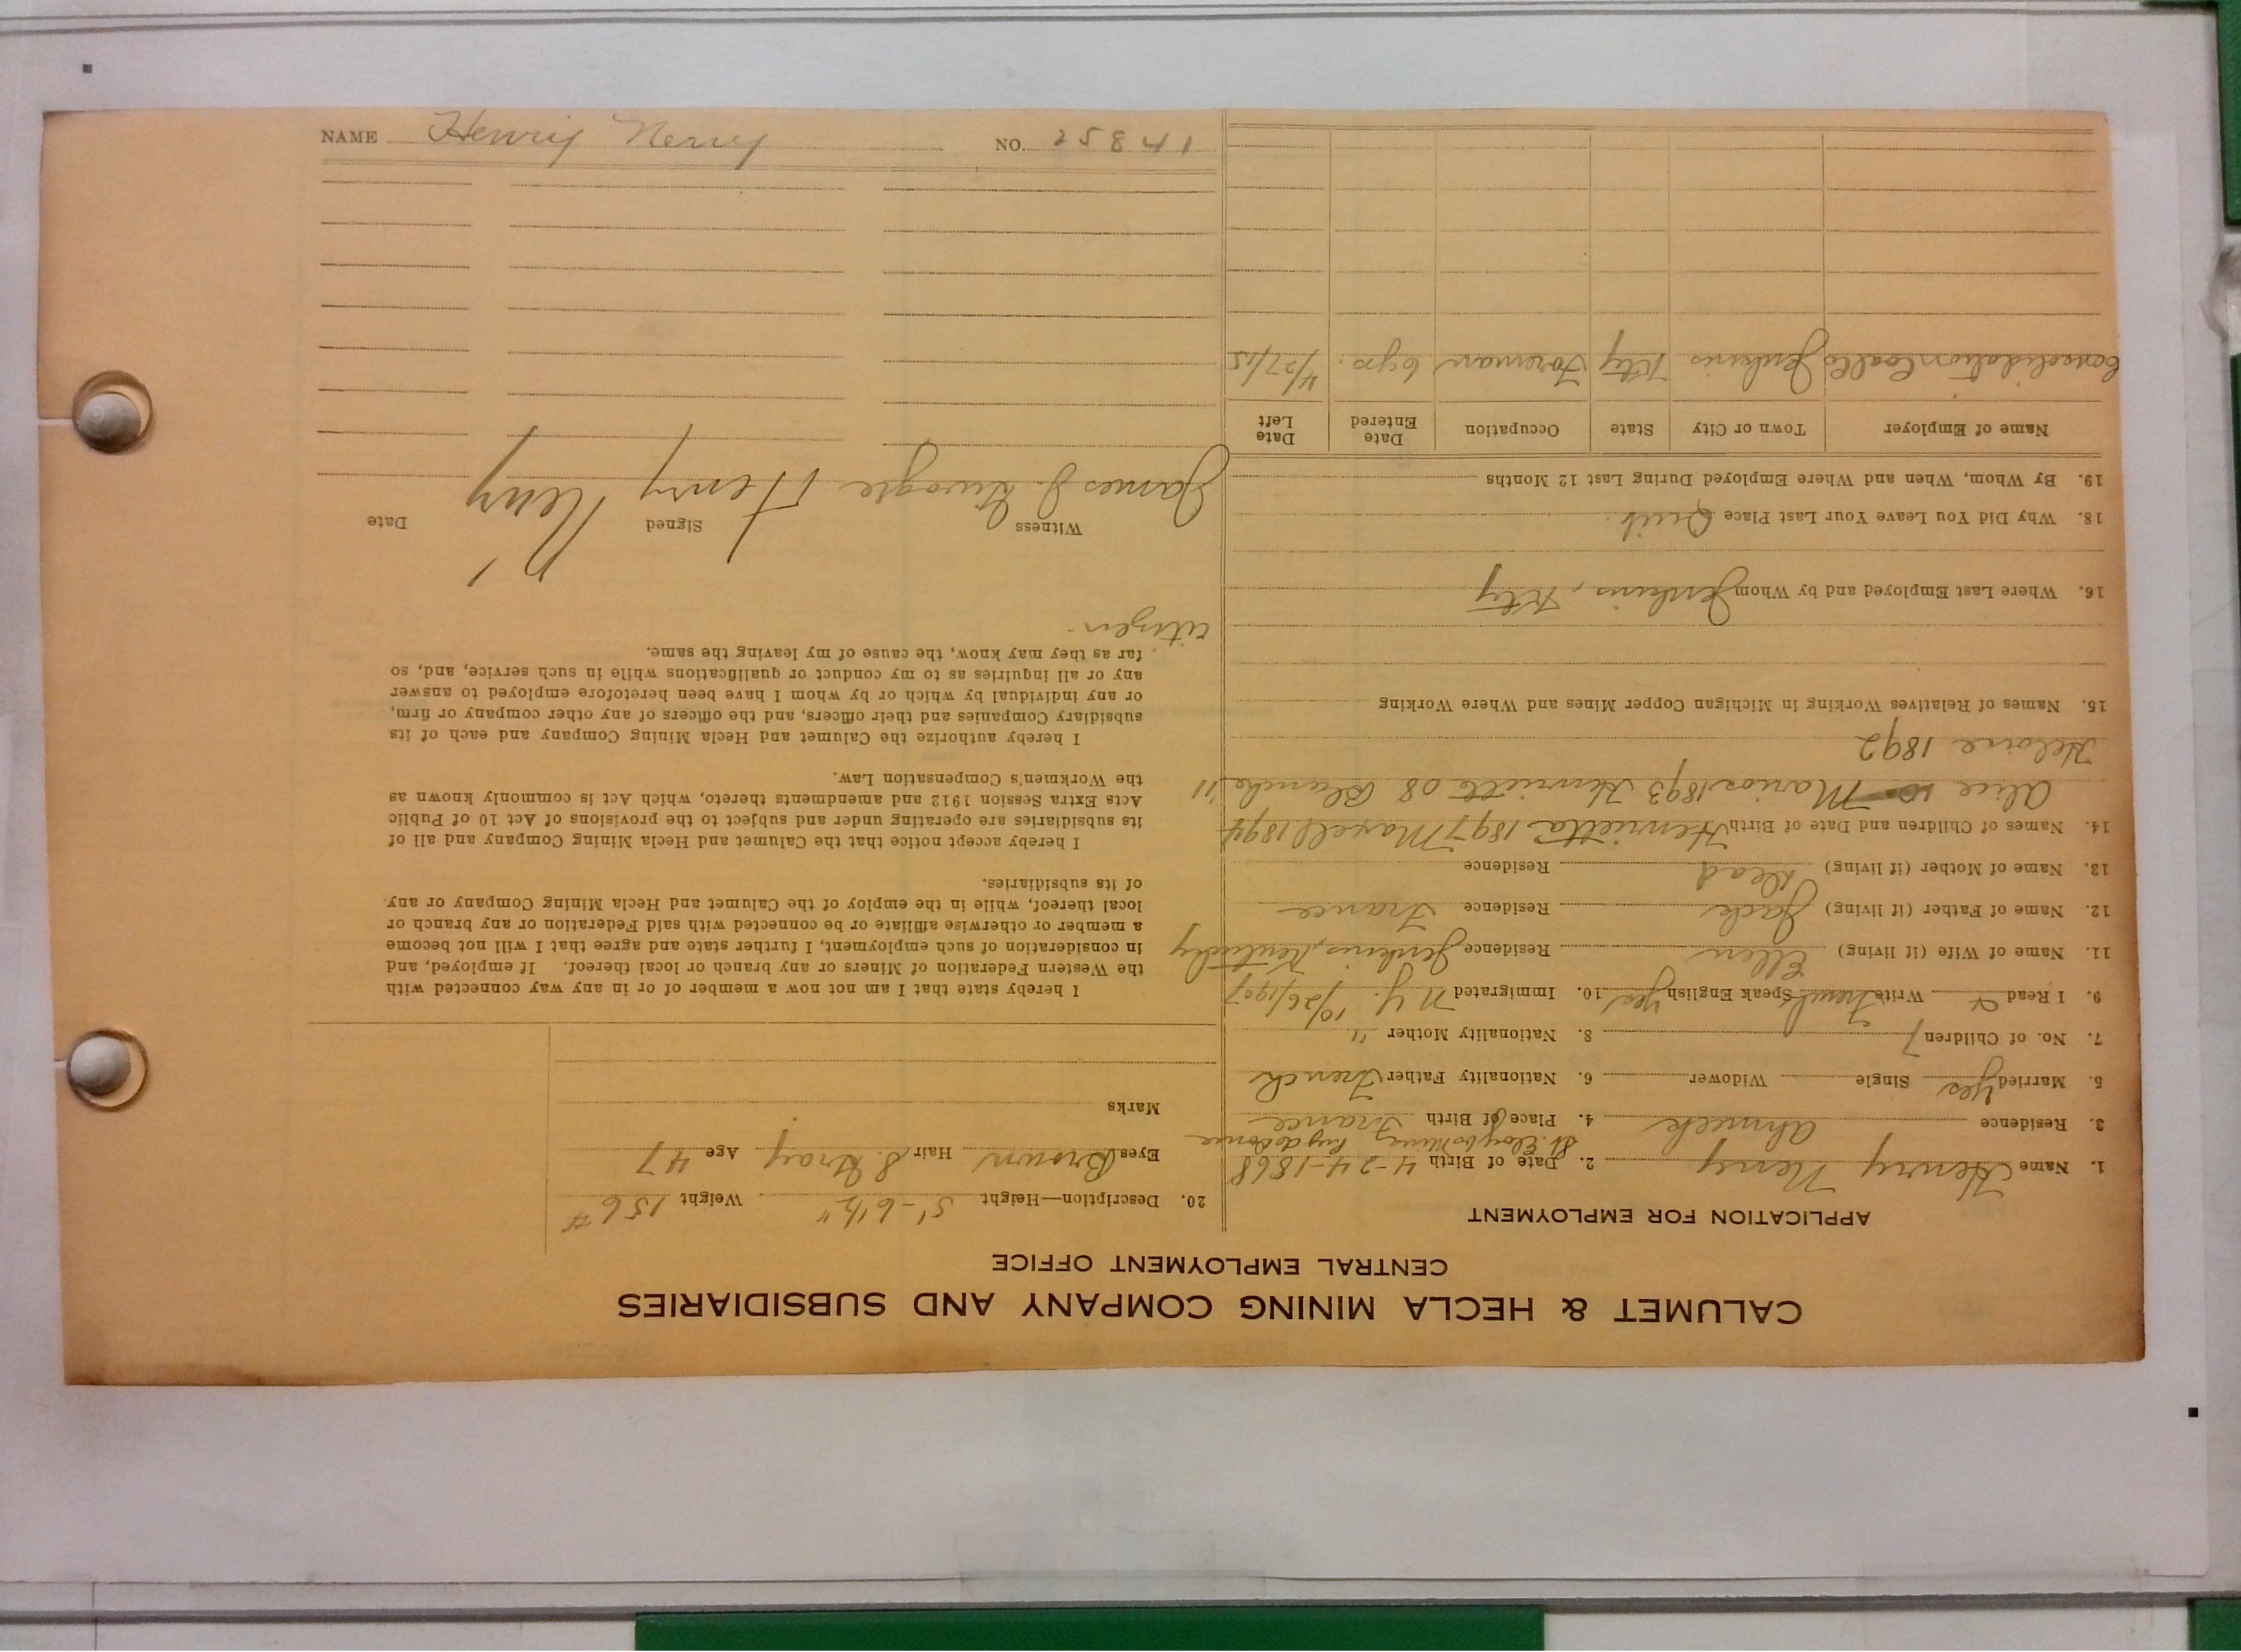 CALUMET & HECLA MINING COMPANY AND SUBSIDIARIES
CENTRAL EMPLOYMENT OFFICE
APPLICATION FOR EMPLOYMENT
1. Name Henry Nery 2. Date of Birth 4-24-1868
St. Eloy les Mines Puy de Dome
3. Residence Ahmeek 4. Place of Birth France
5. Married Yes Single Widower 6. Nationality Father French
7. No. of Children 7 8. Nationality Mother "
9. I Read & Write French Speak English Yes 10. Immigrated N.Y. 10/26/1907
11. Name of Wife (if living) Ellen Residence Jenkins, Kentucky
12. Name of Father (if living) Jack Residence France
13. Name of Mother (if living) Dead Residence
14. Names of Children and Date of Birth Henrietta 1897 Marcell 1894
Alice 10 Marios 1893 Henriett 08 Blanche '11
Heloine 1892
15. Names of Relatives Working in Michigan Copper Mines and Where Working
16. Where Last Employed and by Whom Jenkins, Kty
18. Why Did You Leave Your Last Place Quit.
19. By Whom, When and Where Employed During Last 12 Months
Name of Employer Town or City State Occupation Date Entered Date Left
Consolidation Coal Co Jenkins Kty Foreman 6 yrs. 4/27/15
20. Description—Height 5'-6½" Weight 156 #
Eyes Brown Hair S. Gray Age 47
Marks
I hereby state that I am not now a member of or in any way connected with
the Western Federation of Miners or any branch or local thereof. If employed, and
in consideration of such employment, I further state and agree that I will not become
a member or otherwise affiliate or be connected with said Federation or any branch or
local thereof, while in the employ of the Calumet and Hecla Mining Company or any
of its subsidiaries.
I hereby accept notice that the Calumet and Hecla Mining Company and all of
its subsidiaries are operating under and subject to the provisions of Act 10 of Public
Acts Extra Session 1912 and amendments thereto, which Act is commonly known as
the Workmen's Compensation Law.
I hereby authorize the Calumet and Hecla Mining Company and each of its
subsidiary Companies and their officers, and the officers of any other company or firm,
or any individual by which or by whom I have been heretofore employed to answer
any or all inquiries as to my conduct or qualifications while in such service, and, so
far as they may know, the cause of my leaving the same.
Citizen.
Witness Signed Date
James J. Henry Nery
NAME Henry Nery NO. 25841